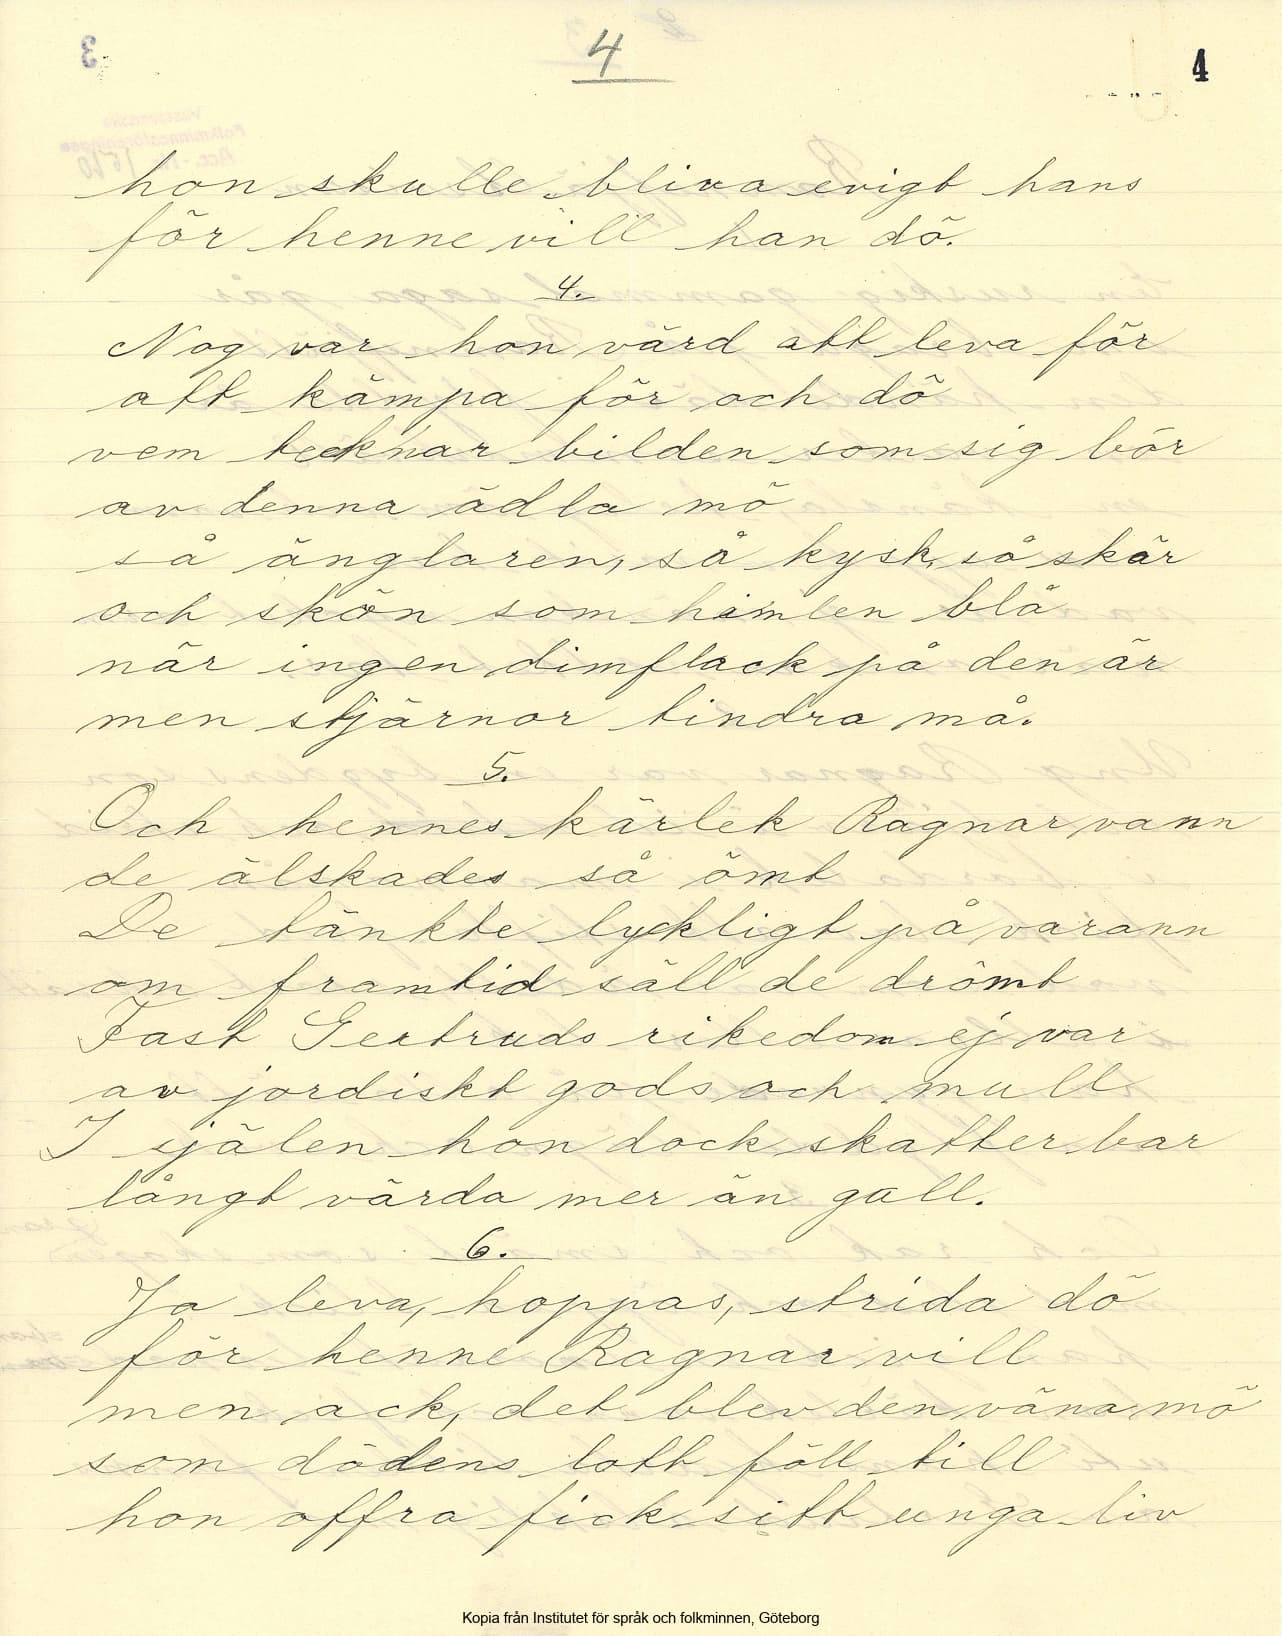 4
4
hon skulle bliva evigt hans
för henne vill han dö.
4.
Nog var hon värd att leva för
att kämpa för och dö
vem tecknar bilden som sig bör
av denna ädla mö
så änglaren, så kysk, så skär
och skön som himlen blå
när ingen dimfläck på den är
men stjärnor tindra må.
5.
Och hennes kärlek Ragnar vann
de älskades så ömt
De tänkte lyckligt på varann
om framtid säll de drömt
Fast Gertruds rikedom ej var
av jordiskt gods och mull
I själen hon dock skatter bar
långt värda mer än gull.
6.
Ja leva, hoppas, strida dö
för henne Ragnar vill
men ack, det blev den väna mö
som dödens lott föll till
hon offra fick sitt unga liv
Kopia från Institutet för språk och folkminnen, Göteborg